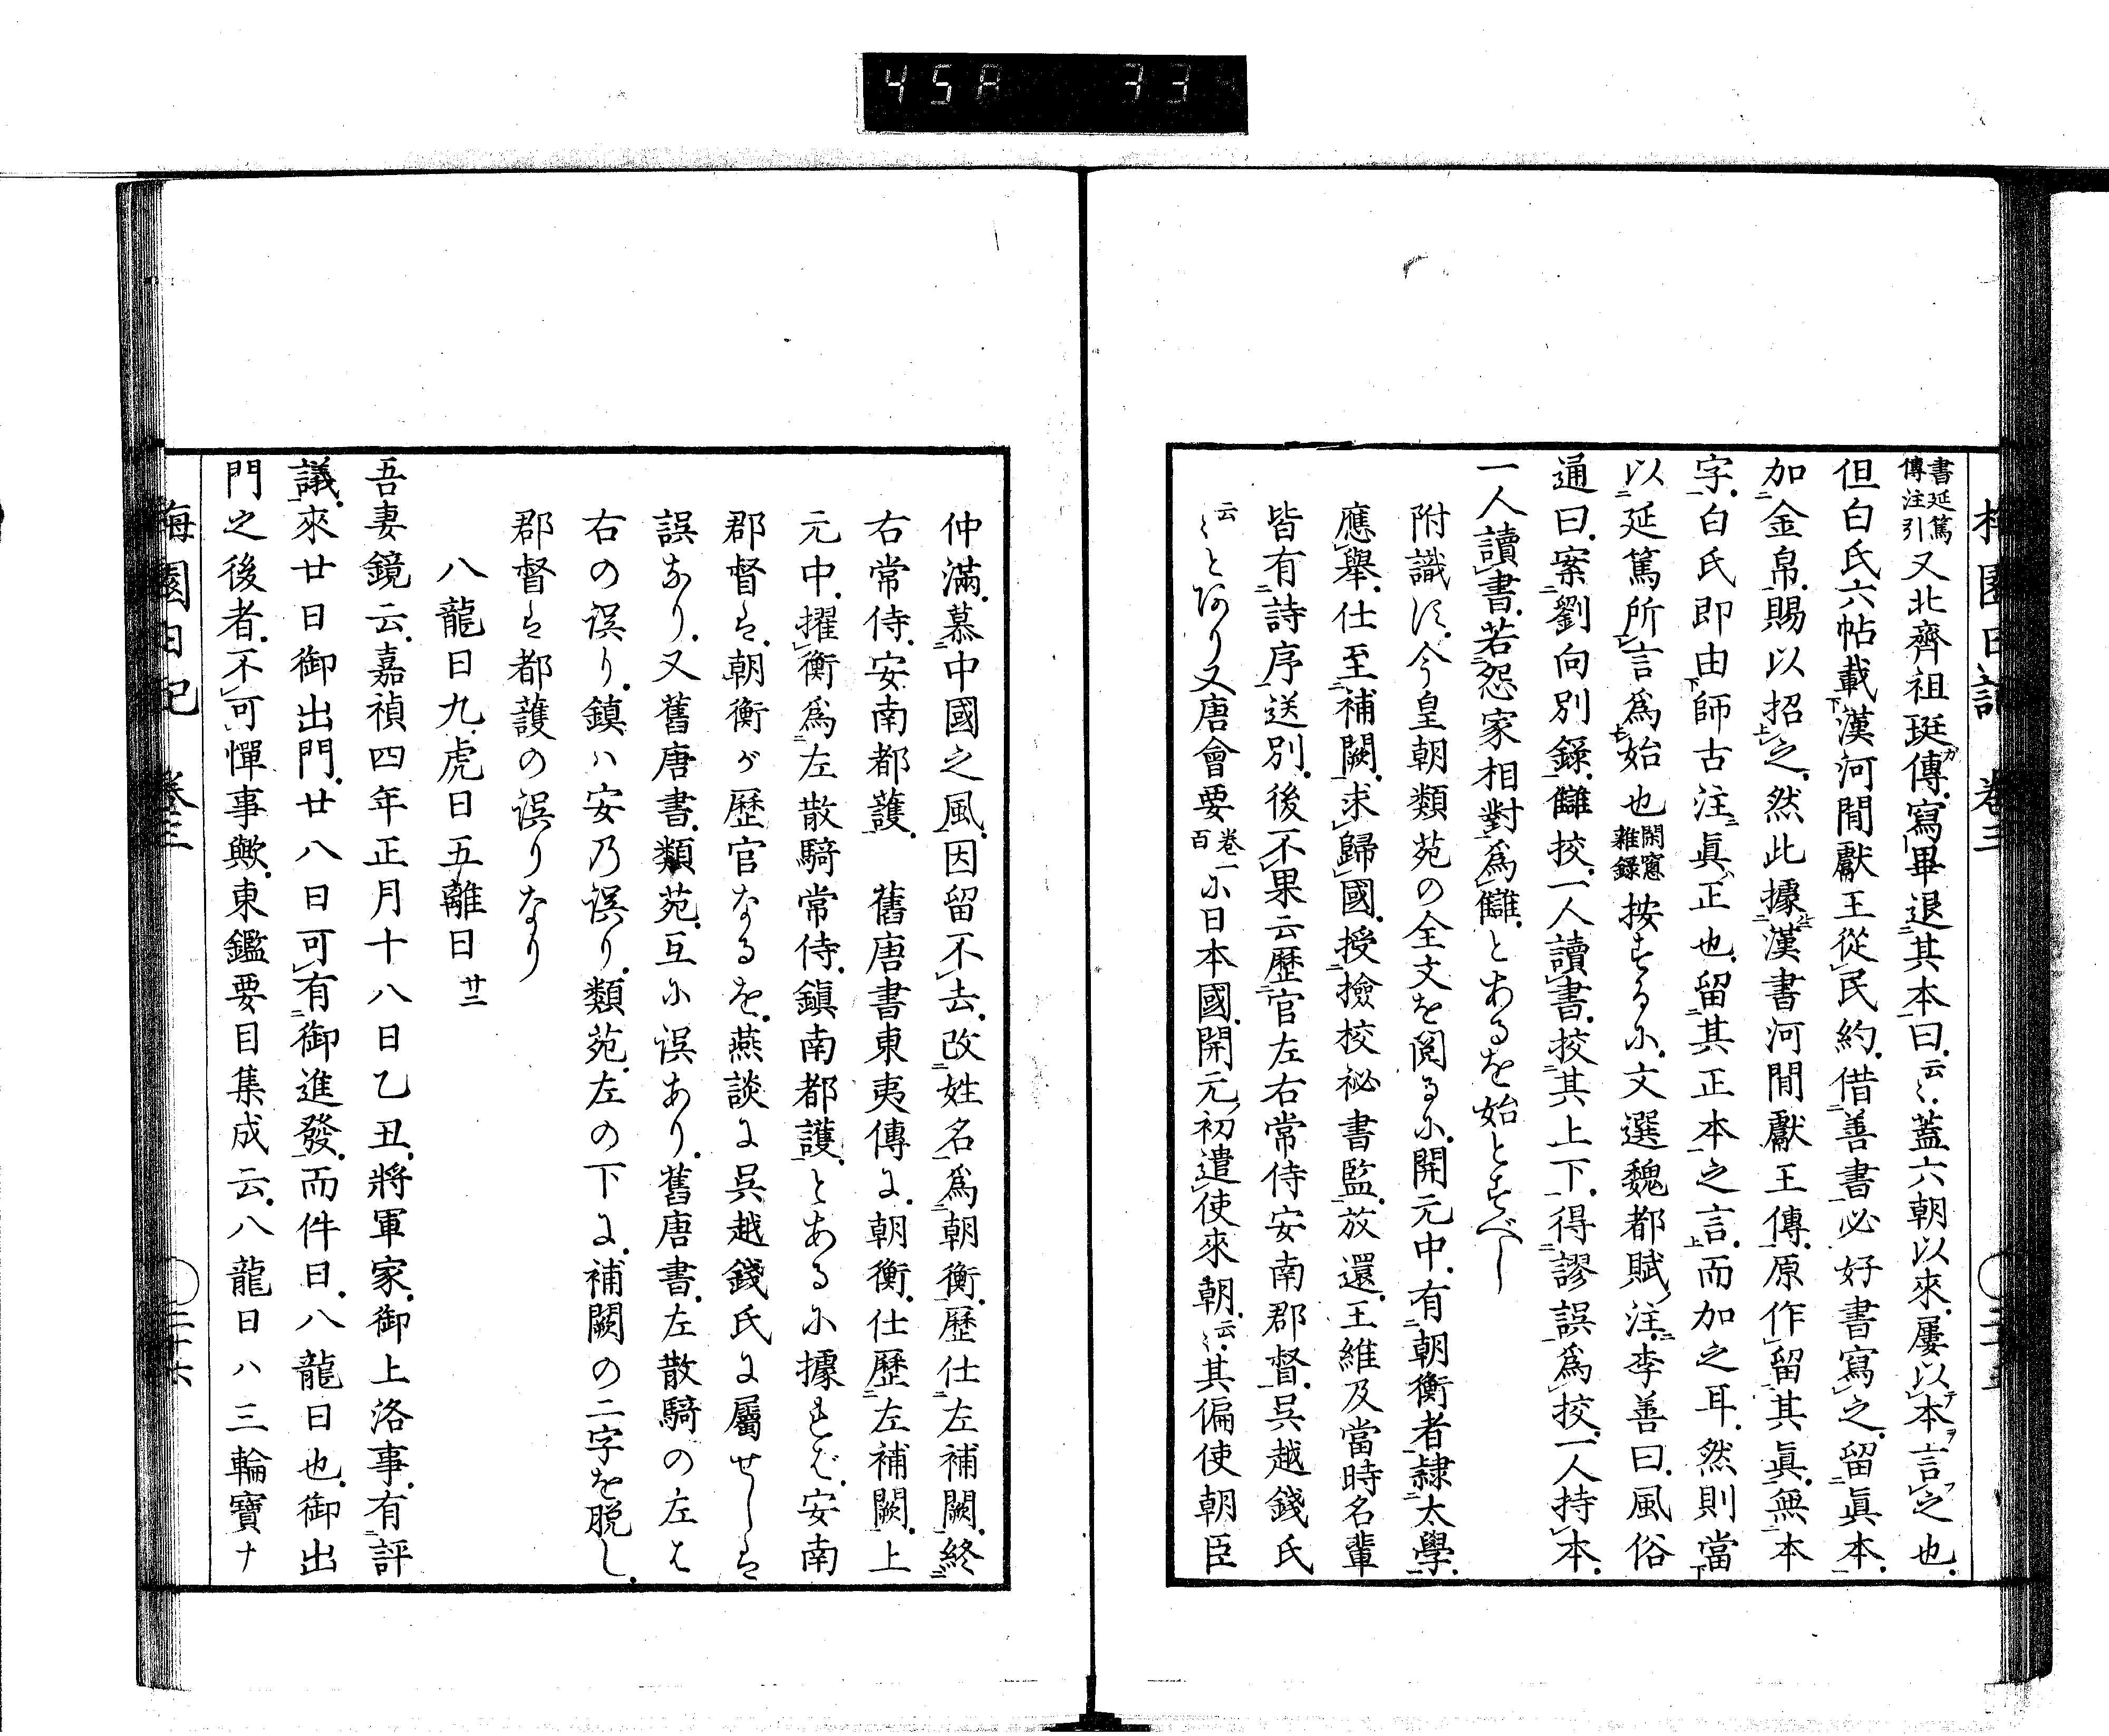 45A 33
梅園日記 卷三 ○二十五
書延篤傳注引又北齊祖珽傳寫畢退其本曰云〻蓋六朝以來屢以本言之也
但白氏六帖載漢河閒獻王從民約借善書必好書寫之留眞本
加金帛賜以招之然此據漢書河閒獻王傳原作留其眞無本
字白氏即由師古注眞正也留其正本之言而加之耳然則當
以延篤所言爲始也閑窻雜録按ずるに文選魏都賦注李善曰風俗
通曰案劉向別錄讎挍一人讀書挍其上下得謬誤爲挍一人持本
一人讀書若怨家相對爲讎とあるを始とすべし
附識す今皇朝類苑の全文を閲るに開元中有朝衡者隸太學
應舉仕至補闕求歸國授撿校祕書監放還王維及當時名輩
皆有詩序送別後不果云歷官左右常侍安南郡督吳越錢氏
云〻とあり又唐會要卷一百に日本國開元初遣使來朝云〻其偏使朝臣
仲滿慕中國之風因留不去改姓名爲朝衡歷仕左補闕終
右常侍安南都護 舊唐書東夷傳に朝衡仕歷左補闕上
元中擢衡爲左散騎常侍鎭南都護とあるに據れば安南
郡督は朝衡が歷官なるを燕談に吳越錢氏に屬せしは
誤なり又舊唐書類苑互に誤あり舊唐書左散騎の左は
右の誤り鎮ハ安乃誤り類苑左の下に補闕の二字を脱し
郡督は都護の誤りなり
八龍日九虎日五離日 廿二
吾妻鏡云嘉禎四年正月十八日乙丑將軍家御上洛事有評
議來廿日御出門廿八日可有御進發而件日八龍日也御出
門之後者不可憚事歟東鑑要目集成云八龍日ハ三輪寶ナ
梅園日記 卷三 ○二十六